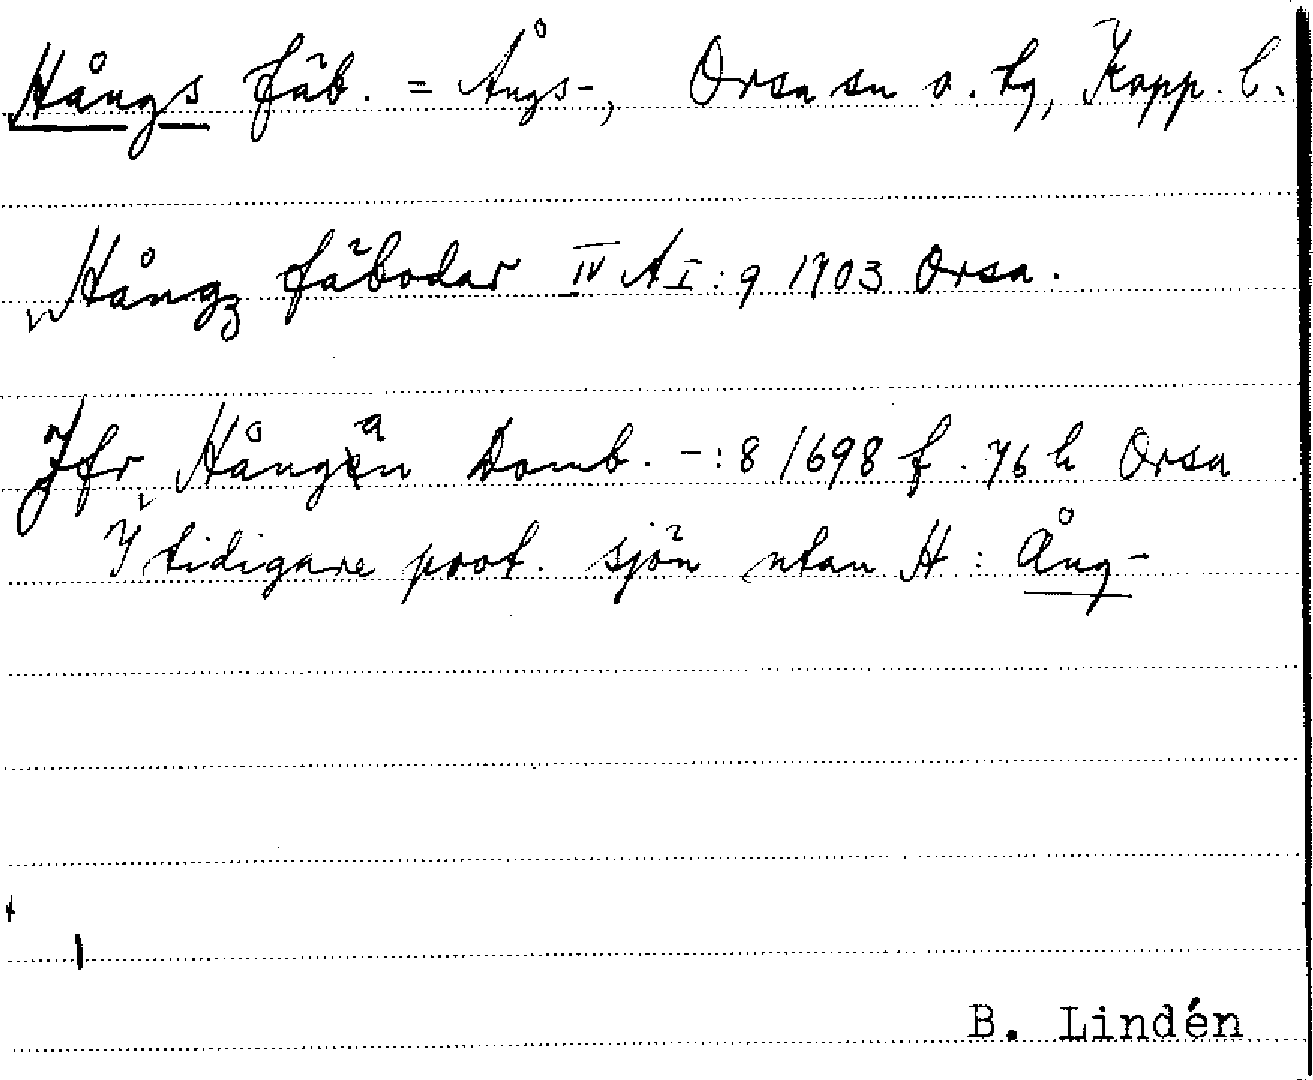 Hångs fäb. = Ångs-, Orsa sn o. tg, Kopp. l.
Hångz fäbodar IV A I: 9 1703 Orsa.
Jfr Hångån Domb. -: 8 1698 f. 76 h Orsa
I tidigare prot. sjön utan H: Ång-
B. Lindén